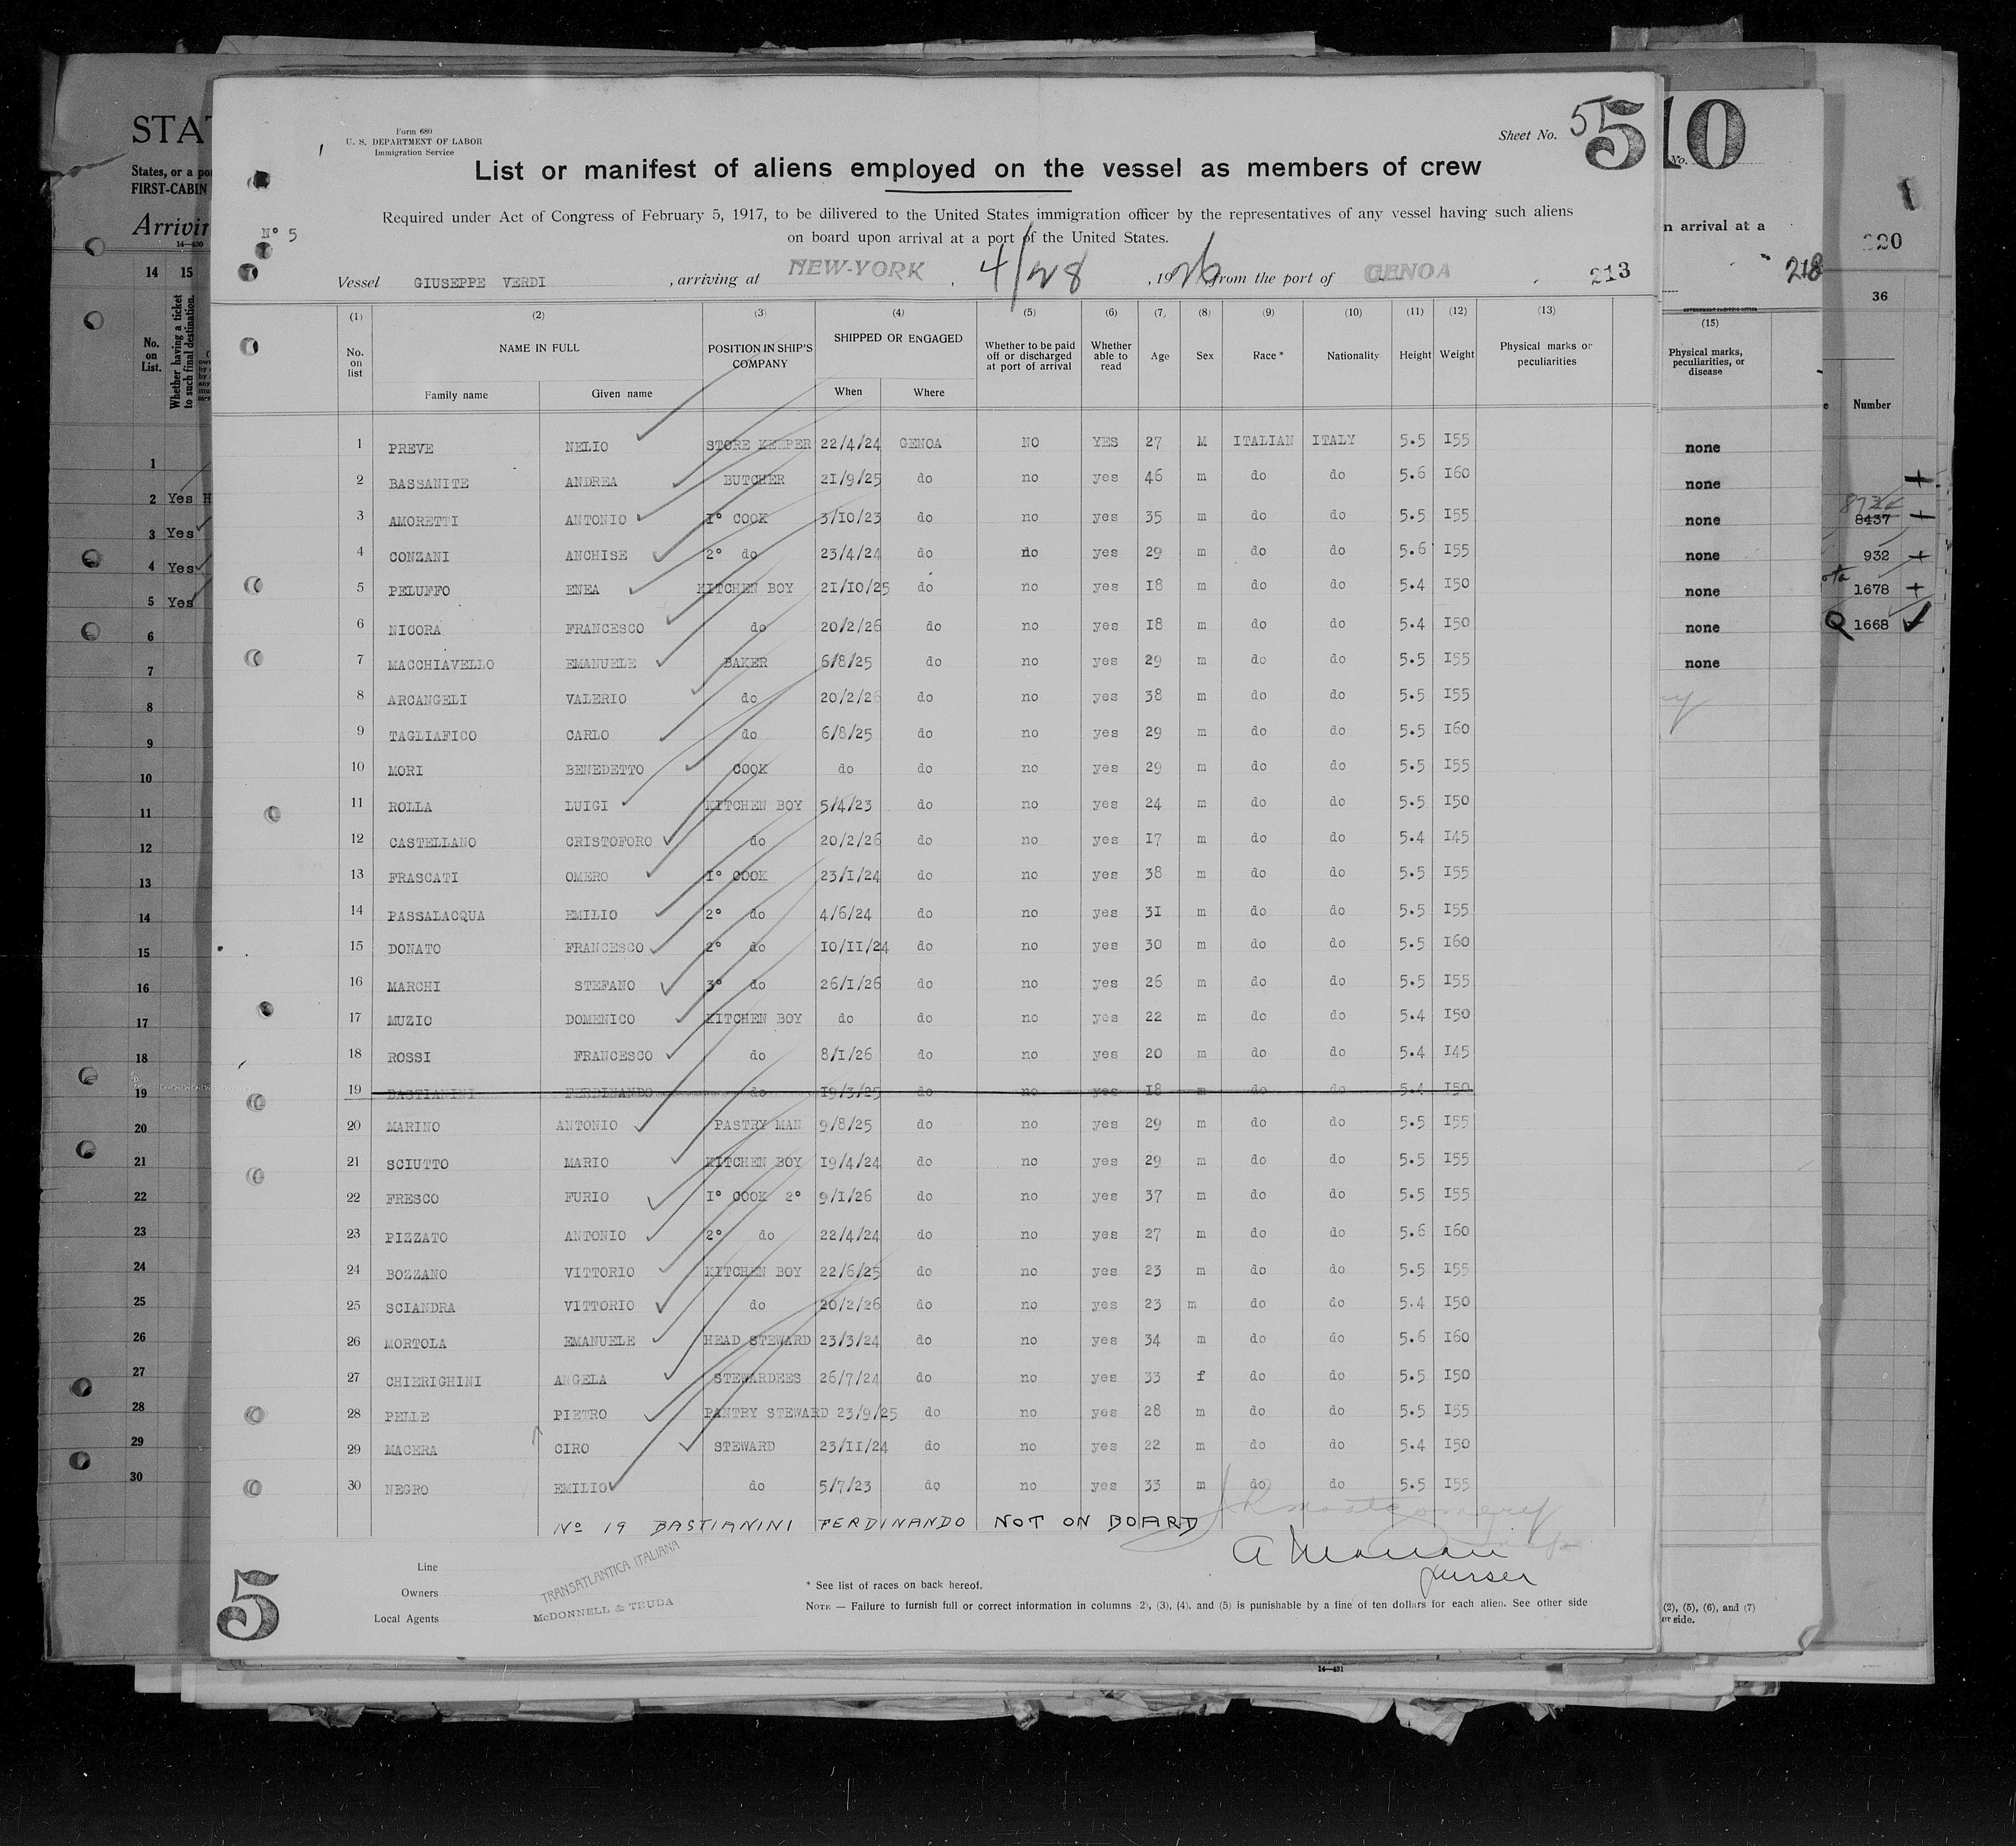 Form 680
U. S. DEPARTMENT OF LABOR
Immigration Service
Sheet No. 5
5
List or manifest of aliens employed on the vessel as members of crew
Required under Act of Congress of February 5, 1917, to be dilivered to the United States immigration officer by the representatives of any vessel having such aliens
on board upon arrival at a port of the United States.
Nº 5
Vessel GIUSEPPE VERDI, arriving at NEW-YORK, 4/28, 1926 from the port of GENOA, 213
(1) (2) (3) (4) (5) (6) (7) (8) (9) (10) (11) (12) (13)
No. on list NAME IN FULL Family name Given name POSITION IN SHIP'S COMPANY SHIPPED OR ENGAGED When Where Whether to be paid off or discharged at port of arrival Whether able to read Age Sex Race * Nationality Height Weight Physical marks or peculiarities
1 PREVE NELIO STORE KEEPER 22/4/24 GENOA NO YES 27 M ITALIAN ITALY 5.5 I55
2 BASSANITE ANDREA BUTCHER 2I/9/25 do no yes 46 m do do 5.6 I60
3 AMORETTI ANTONIO I° COOK 3/10/23 do no yes 35 m do do 5.5 I55
4 CONZANI ANCHISE 2° do 23/4/24 do no yes 29 m do do 5.6 I55
5 PELUFFO ENEA KITCHEN BOY 2I/I0/25 do no yes I8 m do do 5.4 I50
6 NICORA FRANCESCO do 20/2/26 do no yes I8 m do do 5.4 I50
7 MACCHIAVELLO EMANUELE BAKER 6/8/25 do no yes 29 m do do 5.5 I55
8 ARCANGELI VALERIO do 20/2/26 do no yes 38 m do do 5.5 I55
9 TAGLIAFICO CARLO do 6/8/25 do no yes 29 m do do 5.5 I60
10 MORI BENEDETTO COOK do do no yes 29 m do do 5.5 I55
11 ROLLA LUIGI KITCHEN BOY 5/4/23 do no yes 24 m do do 5.5 I50
12 CASTELLANO CRISTOFORO do 20/2/26 do no yes I7 m do do 5.4 I45
13 FRASCATI OMERO I° COOK 23/I/24 do no yes 38 m do do 5.5 I55
14 PASSALACQUA EMILIO 2° do 4/6/24 do no yes 3I m do do 5.5 I55
15 DONATO FRANCESCO 2° do I0/II/24 do no yes 30 m do do 5.5 I60
16 MARCHI STEFANO 3° do 26/I/26 do no yes 26 m do do 5.5 I55
17 MUZIO DOMENICO KITCHEN BOY do do no yes 22 m do do 5.4 I50
18 ROSSI FRANCESCO do 8/I/26 do no yes 20 m do do 5.4 I45
19 BASTIANINI FERDINANDO do I9/3/25 do no yes I8 m do do 5.4 I50
20 MARINO ANTONIO PASTRY MAN 9/8/25 do no yes 29 m do do 5.5 I55
21 SCIUTTO MARIO KITCHEN BOY I9/4/24 do no yes 29 m do do 5.5 I55
22 FRESCO FURIO I° COOK 2° 9/I/26 do no yes 37 m do do 5.5 I55
23 PIZZATO ANTONIO 2° do 22/4/24 do no yes 27 m do do 5.6 I60
24 BOZZANO VITTORIO KITCHEN BOY 22/6/25 do no yes 23 m do do 5.5 I55
25 SCIANDRA VITTORIO do 20/2/26 do no yes 23 m do do 5.4 I50
26 MORTOLA EMANUELE HEAD STEWARD 23/3/24 do no yes 34 m do do 5.6 I60
27 CHIERIGHINI ANGELA STEWARDEES 26/7/24 do no yes 33 f do do 5.5 I50
28 PELLE PIETRO PANTRY STEWARD 23/9/25 do no yes 28 m do do 5.5 I55
29 MACERA CIRO STEWARD 23/II/24 do no yes 22 m do do 5.4 I50
30 NEGRO EMILIO do 5/7/23 do no yes 33 m do do 5.5 I55
Nº 19 BASTIANINI FERDINANDO NOT ON BOARD
Purser
Line TRANSATLANTICA ITALIANA
Owners
Local Agents McDONNELL & TRUDA
* See list of races on back hereof.
NOTE — Failure to furnish full or correct information in columns 2), (3), (4), and (5) is punishable by a fine of ten dollars for each alien. See other side
5
STAT
States, or a
FIRST-CABIN
14—430
14 15
No. on List.
Whether having a ticket to such final destination.
1
2 Yes H
3 Yes
4 Yes
5 Yes
6
7
8
9
10
11
12
13
14
15
16
17
18
19
20
21
22
23
24
25
26
27
28
29
30
10
No.
n arrival at a
218
(15)
Physical marks, peculiarities, or disease
none
none
none
none
none
none
none
(2), (5), (6), and (7)
er side.
14—431
36
Number
8437
932
1678
1668